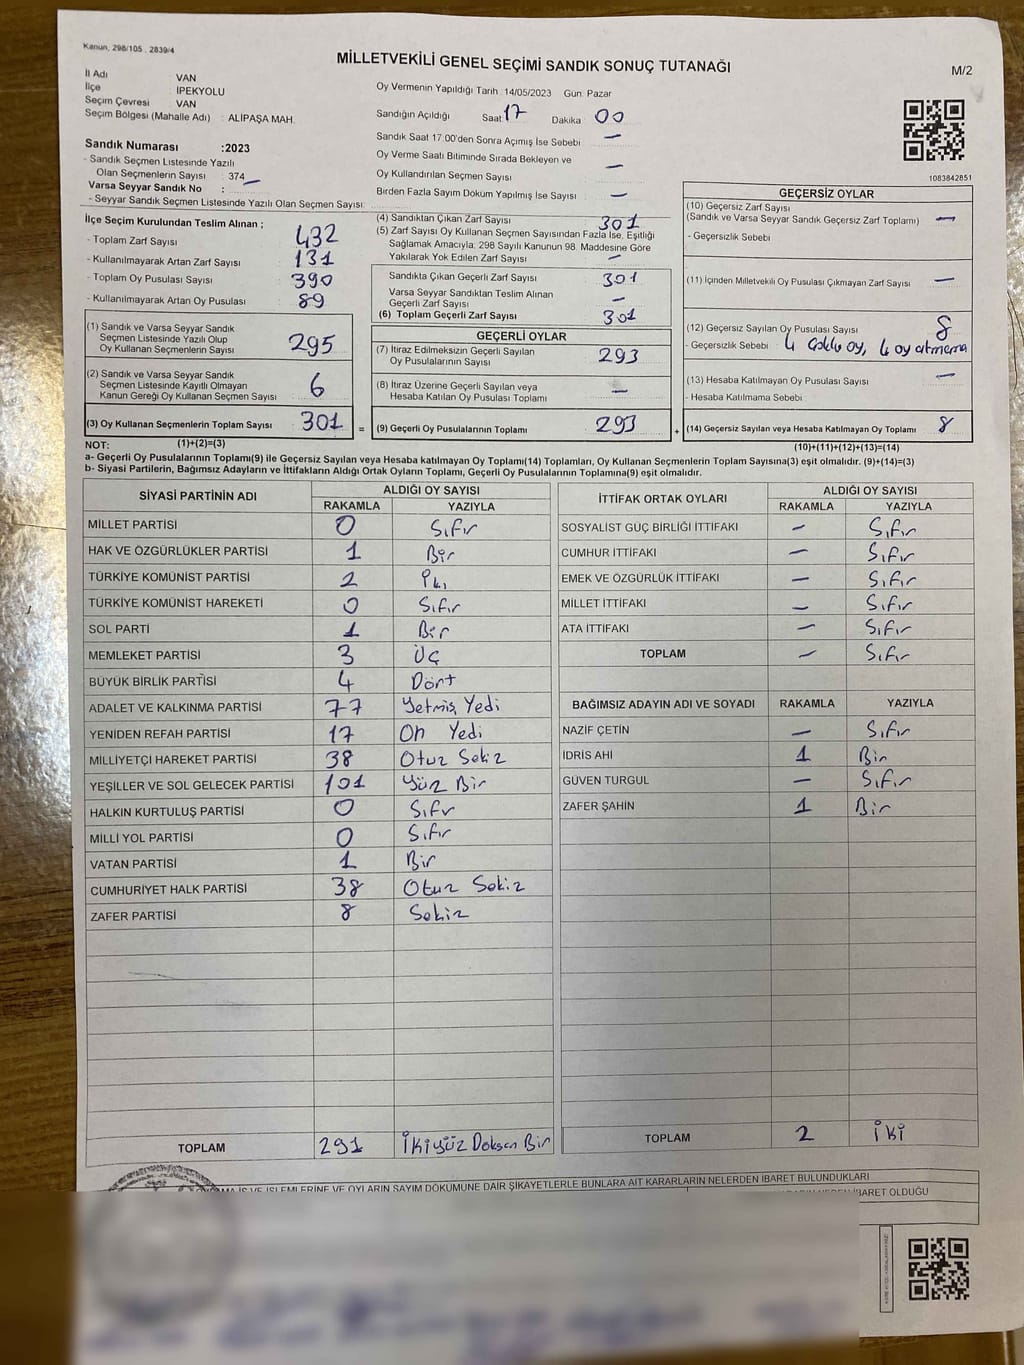 Kanun, 298/105 , 2839/4
MİLLETVEKİLİ GENEL SEÇİMİ SANDIK SONUÇ TUTANAĞI
M/2
İl Adı : VAN
İlçe : İPEKYOLU
Seçim Çevresi : VAN
Seçim Bölgesi (Mahalle Adı) : ALİPAŞA MAH.
Oy Vermenin Yapıldığı Tarih : 14/05/2023 Gün: Pazar
Sandığın Açıldığı Saat: 17 Dakika : 00
Sandık Saat 17:00'den Sonra Açımış İse Sebebi —
Oy Verme Saati Bitiminde Sırada Bekleyen ve
Oy Kullandırılan Seçmen Sayısı —
Birden Fazla Sayım Döküm Yapılmış İse Sayısı —
1083842851
Sandık Numarası :2023
- Sandık Seçmen Listesinde Yazılı
Olan Seçmenlerin Sayısı : 374
Varsa Seyyar Sandık No : —
- Seyyar Sandık Seçmen Listesinde Yazılı Olan Seçmen Sayısı:
İlçe Seçim Kurulundan Teslim Alınan ;
- Toplam Zarf Sayısı 432
- Kullanılmayarak Artan Zarf Sayısı 131
- Toplam Oy Pusulası Sayısı 390
- Kullanılmayarak Artan Oy Pusulası 89
(1) Sandık ve Varsa Seyyar Sandık
Seçmen Listesinde Yazılı Olup
Oy Kullanan Seçmenlerin Sayısı 295
(2) Sandık ve Varsa Seyyar Sandık
Seçmen Listesinde Kayıtlı Olmayan
Kanun Gereği Oy Kullanan Seçmen Sayısı 6
(3) Oy Kullanan Seçmenlerin Toplam Sayısı 301 =
(4) Sandıktan Çıkan Zarf Sayısı 301
(5) Zarf Sayısı Oy Kullanan Seçmen Sayısından Fazla İse, Eşitliği
Sağlamak Amacıyla, 298 Sayılı Kanunun 98. Maddesine Göre
Yakılarak Yok Edilen Zarf Sayısı —
Sandıkta Çıkan Geçerli Zarf Sayısı 301
Varsa Seyyar Sandıktan Teslim Alınan
Geçerli Zarf Sayısı —
(6) Toplam Geçerli Zarf Sayısı 301
GEÇERLİ OYLAR
(7) İtiraz Edilmeksizin Geçerli Sayılan
Oy Pusulalarının Sayısı 293
(8) İtiraz Üzerine Geçerli Sayılan veya
Hesaba Katılan Oy Pusulası Toplamı —
(9) Geçerli Oy Pusulalarının Toplamı 293 +
GEÇERSİZ OYLAR
(10) Geçersiz Zarf Sayısı
(Sandık ve Varsa Seyyar Sandık Geçersiz Zarf Toplamı) —
- Geçersizlik Sebebi
(11) İçinden Milletvekili Oy Pusulası Çıkmayan Zarf Sayısı —
(12) Geçersiz Sayılan Oy Pusulası Sayısı 8
- Geçersizlik Sebebi 4 Çoklu oy, 4 oy atmama
(13) Hesaba Katılmayan Oy Pusulası Sayısı —
- Hesaba Katılmama Sebebi
(14) Geçersiz Sayılan veya Hesaba Katılmayan Oy Toplamı 8
NOT: (1)+(2)=(3)
(10)+(11)+(12)+(13)=(14)
a- Geçerli Oy Pusulalarının Toplamı(9) ile Geçersiz Sayılan veya Hesaba katılmayan Oy Toplamı(14) Toplamları, Oy Kullanan Seçmenlerin Toplam Sayısına(3) eşit olmalıdır. (9)+(14)=(3)
b- Siyasi Partilerin, Bağımsız Adayların ve İttifakların Aldığı Ortak Oyların Toplamı, Geçerli Oy Pusulalarının Toplamına(9) eşit olmalıdır.
SİYASİ PARTİNİN ADI ALDIĞI OY SAYISI
RAKAMLA YAZIYLA
MİLLET PARTİSİ 0 Sıfır
HAK VE ÖZGÜRLÜKLER PARTİSİ 1 Bir
TÜRKİYE KOMÜNİST PARTİSİ 2 İki
TÜRKİYE KOMÜNİST HAREKETİ 0 Sıfır
SOL PARTİ 1 Bir
MEMLEKET PARTİSİ 3 Üç
BÜYÜK BİRLİK PARTİSİ 4 Dört
ADALET VE KALKINMA PARTİSİ 77 Yetmiş Yedi
YENİDEN REFAH PARTİSİ 17 On Yedi
MİLLİYETÇİ HAREKET PARTİSİ 38 Otuz Sekiz
YEŞİLLER VE SOL GELECEK PARTİSİ 101 Yüz Bir
HALKIN KURTULUŞ PARTİSİ 0 Sıfır
MİLLİ YOL PARTİSİ 0 Sıfır
VATAN PARTİSİ 1 Bir
CUMHURİYET HALK PARTİSİ 38 Otuz Sekiz
ZAFER PARTİSİ 8 Sekiz
TOPLAM 291 İkiyüz Doksan Bir
İTTİFAK ORTAK OYLARI ALDIĞI OY SAYISI
RAKAMLA YAZIYLA
SOSYALİST GÜÇ BİRLİĞİ İTTİFAKI — Sıfır
CUMHUR İTTİFAKI — Sıfır
EMEK VE ÖZGÜRLÜK İTTİFAKI — Sıfır
MİLLET İTTİFAKI — Sıfır
ATA İTTİFAKI — Sıfır
TOPLAM — Sıfır
BAĞIMSIZ ADAYIN ADI VE SOYADI RAKAMLA YAZIYLA
NAZİF ÇETİN — Sıfır
İDRİS AHİ 1 Bir
GÜVEN TURGUL — Sıfır
ZAFER ŞAHİN 1 Bir
TOPLAM 2 İki
İŞ VE İŞLEMLERİNE VE OYLARIN SAYIM DÖKÜMÜNE DAİR ŞİKAYETLERLE BUNLARA AİT KARARLARIN NELERDEN İBARET BULUNDUKLARI
İBARET OLDUĞU